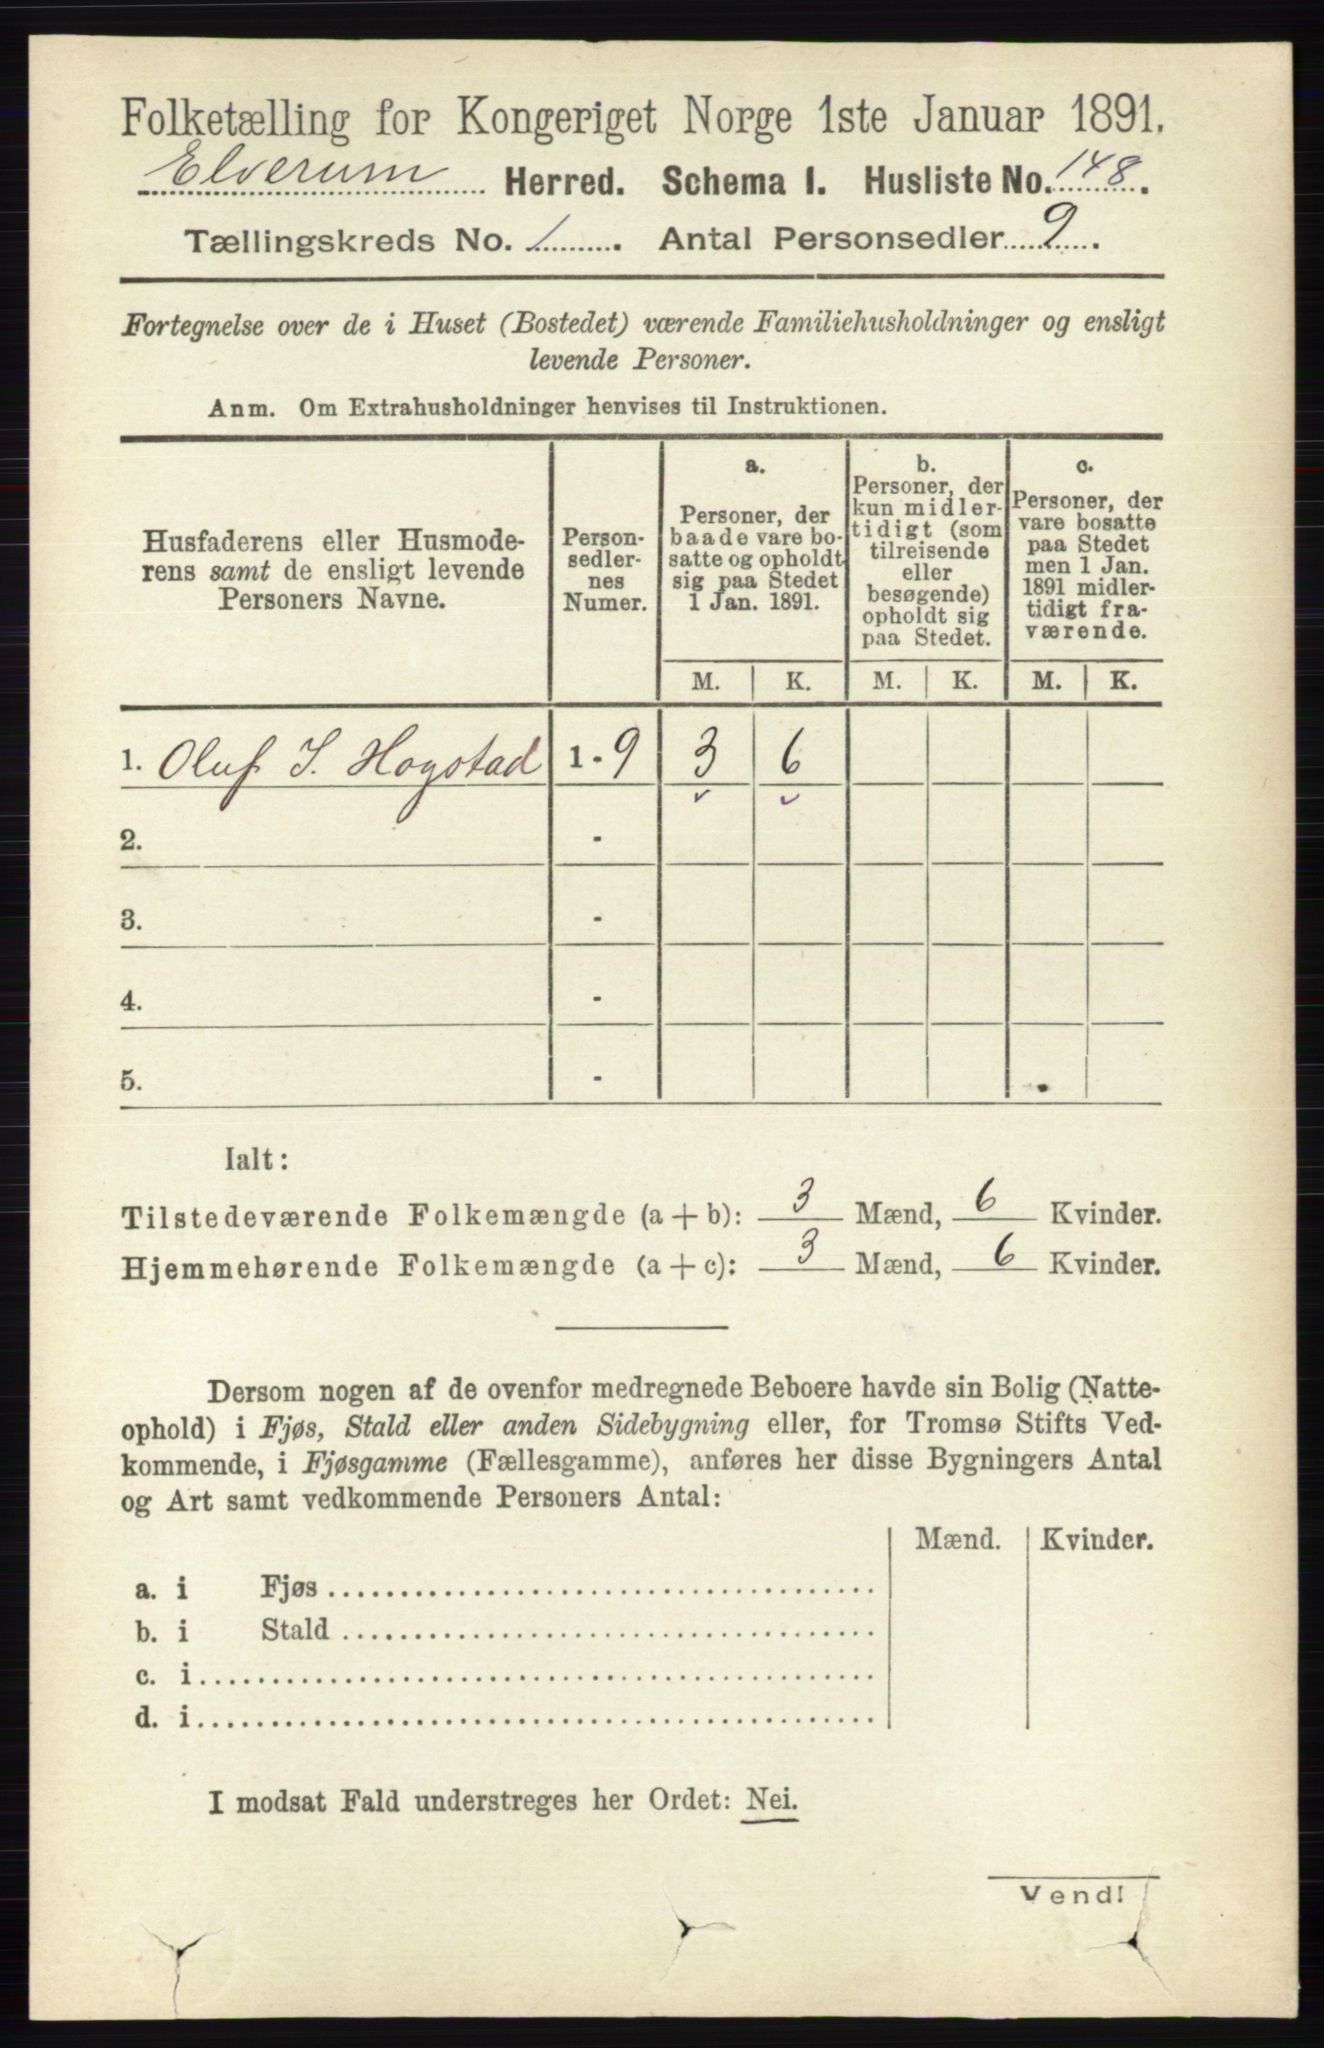 Folketælling for Kongeriget Norge 1ste Januar 1891.
Elverum Herred. Schema I. Husliste No. 148.
Tællingskreds No. 1. Antal Personsedler 9.
Fortegnelse over de i Huset (Bostedet) værende Familiehusholdninger og ensligt
levende Personer.
Anm. Om Extrahusholdninger henvises til Instruktionen.
Husfaderens eller Husmode-
rens samt de ensligt levende
Personers Navne.
Person-
sedler-
nes
Numer.
a.
Personer, der
baade vare bo-
satte og opholdt
sig paa Stedet
1 Jan. 1891.
b.
Personer, der
kun midler-
tidigt (som
tilreisende
eller
besøgende)
opholdt sig
paa Stedet.
c.
Personer, der
vare bosatte
paa Stedet
men 1 Jan.
1891 midler-
tidigt fra-
værende.
M. K. M. K. M. K.
1. Oluf I. Hogstad 1-9 3 6
2. -
3. -
4. -
5. -
Ialt:
Tilstedeværende Folkemængde (a + b): 3 Mænd, 6 Kvinder.
Hjemmehørende Folkemængde (a + c): 3 Mænd, 6 Kvinder.
Dersom nogen af de ovenfor medregnede Beboere havde sin Bolig (Natte-
ophold) i Fjøs, Stald eller anden Sidebygning eller, for Tromsø Stifts Ved-
kommende, i Fjøsgamme (Fællesgamme), anføres her disse Bygningers Antal
og Art samt vedkommende Personers Antal:
Mænd. Kvinder.
a. i Fjøs
b. i Stald
c. i
d. i
I modsat Fald understreges her Ordet: Nei.
Vend!